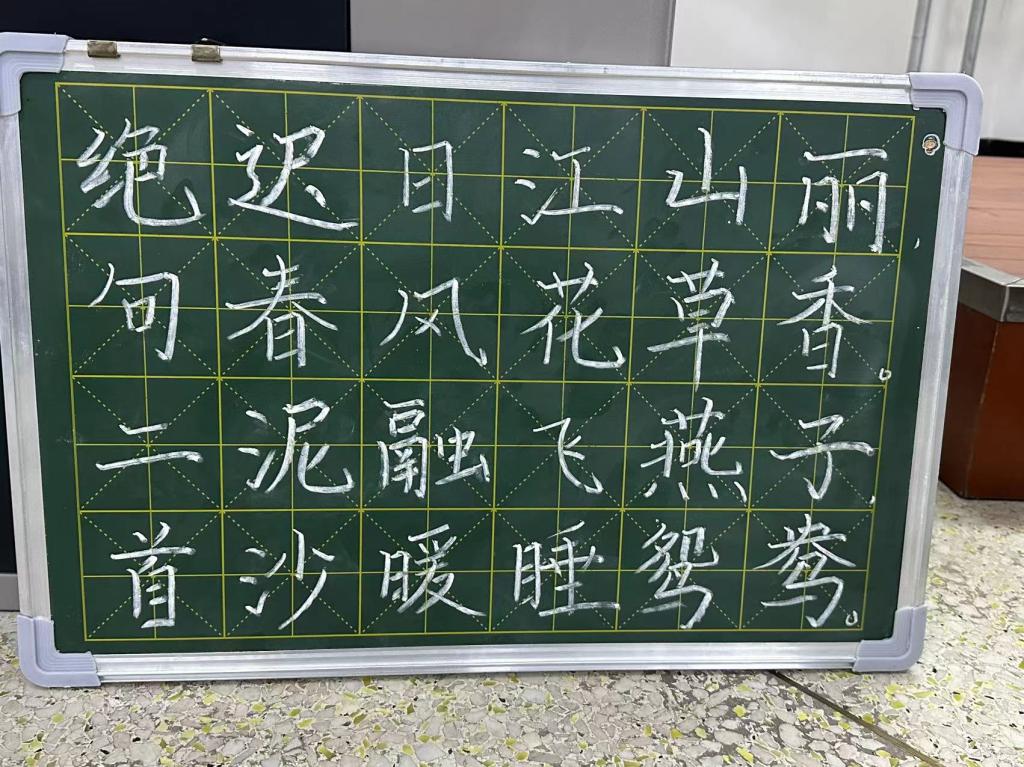 绝句二首
迟日江山丽，
春风花草香。
泥融飞燕子，
沙暖睡鸳鸯。